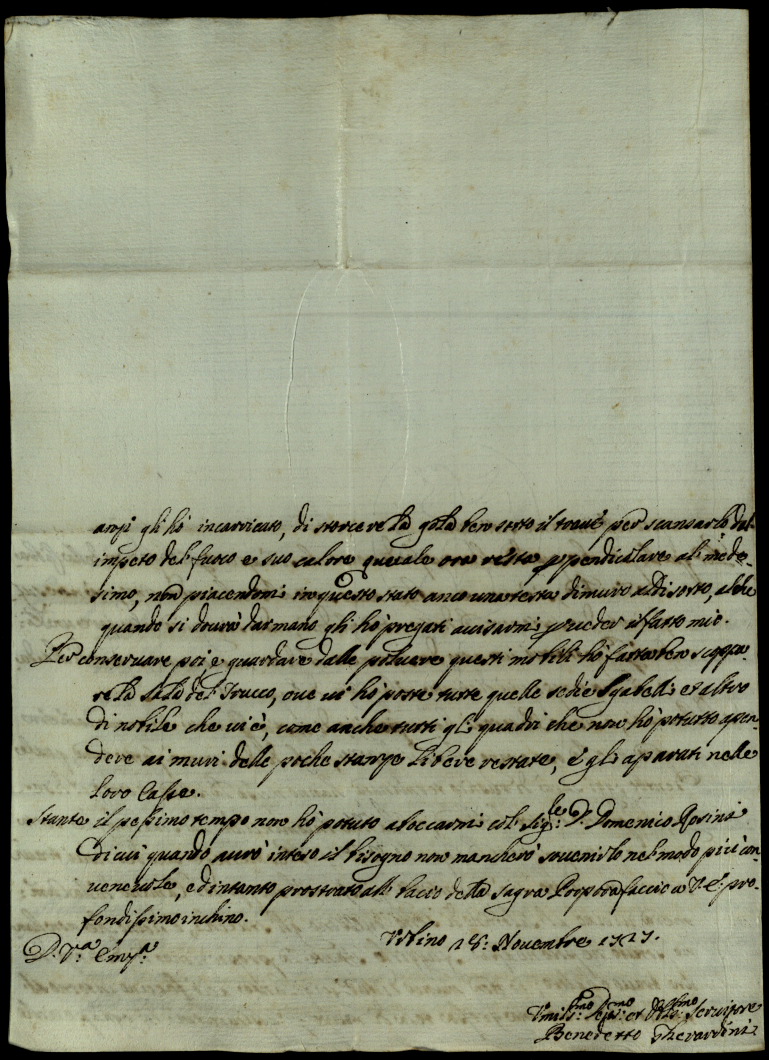 anzi gli hò incaricato, di storcere la gola ben sotto il trave per scansarlo dal
impeto del fuoco e suo calore quale ora resta perpendicolare al mede-
simo, non piacendomi in questo stato anco una testa di muro al di sotto, ed che
quando si dovrà dar mano gli hò pregati avisarmi per veder il fatto mio.
Per conservare poi e guardare dalla polvere questi mobili hò fatta ben scopa-
re la sala del Trucco, ove vi hò poste tutte quelle sedie sgabelli et altro
di nobile che vi è, come anche tutti gli quadri che non hò potutto apen-
dere ai muri delle poche stanze libere restate, e gli aparati nelle
loro Casse.
Stante il pessimo tempo non hò potuto aboccarmi col Sig:re D. Domenico Rosini
di cui quando avrò inteso il bisogno non mancherò sovenirlo nel modo più con-
venevole, ed intanto prostrato al bacio della Sagra Porpora faccio a V. E: pro-
fondissimo inchino.
D. V.ra Em.za
Urbino 18: Novembre 1727.
Umiliss:mo Dev:mo et Obb:mo Servitore
Benedetto